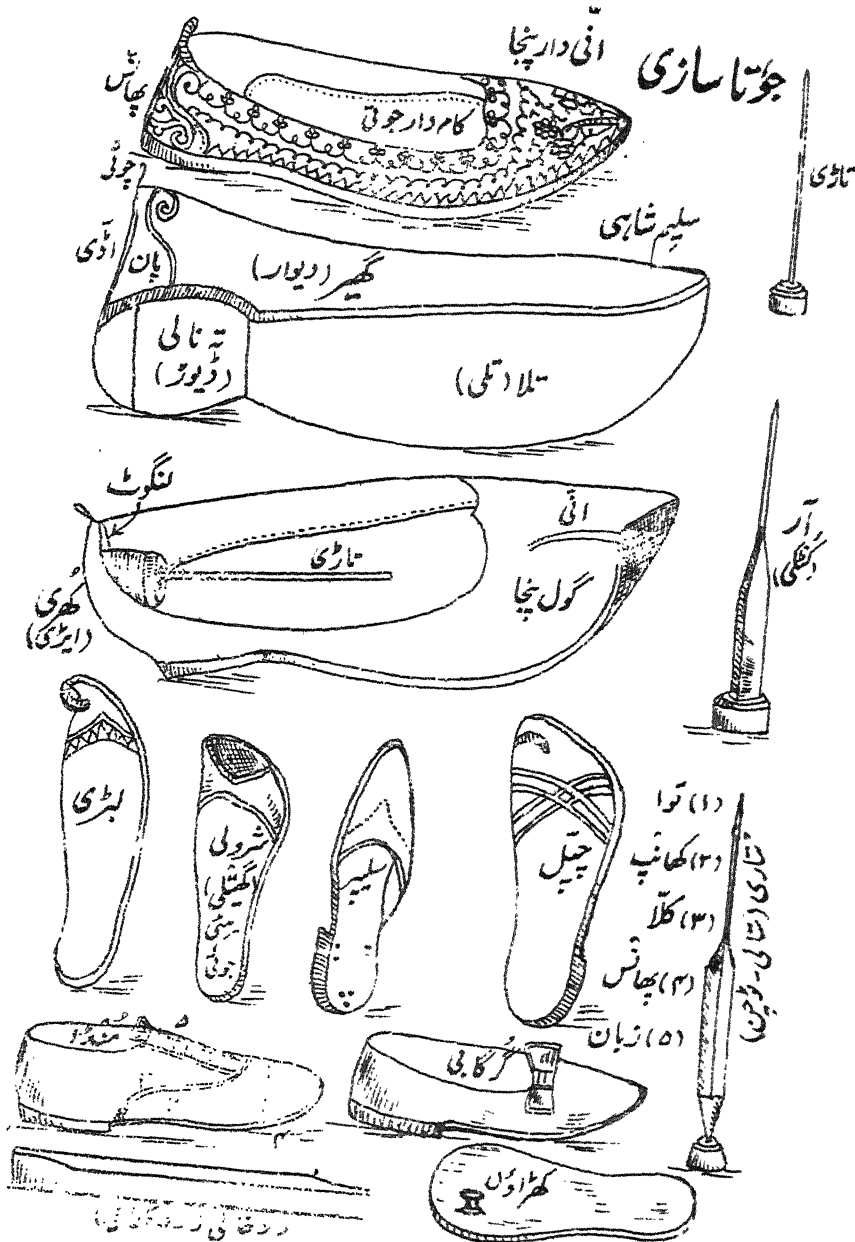 جُوتا سازی
انّی دار پنجا
پھانّس
کام دار جوتی
چوٹی
تاڑی
سلیم شاہی
اڈّی
پان
گھیر (دیوار)
تہ نالی
(ڈیوڑ)
تلا (تلی)
لنگوٹ
انّی
تاڑی
گول پنجا
کُھری
(ایڑی)
آر
(کٹنگی)
لبڑی
شرولی
(گھیتلی)
جوتی
سلیپر
چپّل
(۱) توا
(۲) کھانپ
(۳) کلّا
(۴) پھانّس
(۵) زبان
مُنڈا
۵
گُرگابی
۴
کھڑاوٗں